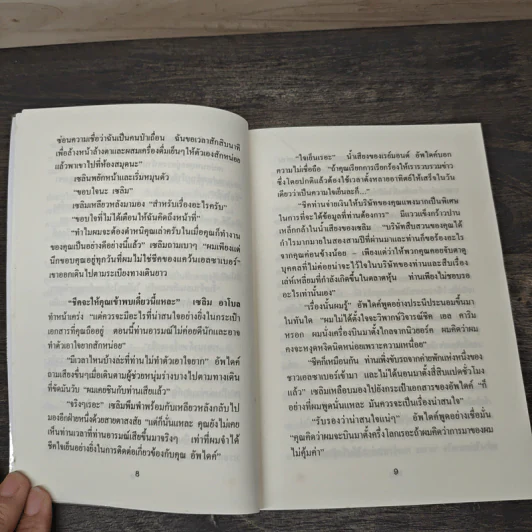 ซ่อนความเชื่อว่าฉันเป็นคนป่าเถื่อน ฉันขอเวลาสักสิบนาที
เพื่อล้างหน้าล้างตาและผสมเครื่องดื่มเย็นๆให้ตัวเองสักหน่อย
แล้วพาเขาไปที่ห้องสมุดนะ”
เซลิมพยักหน้าและเริ่มหมุนตัว
“ขอบใจนะ เซลิม”
เซลิมเหลียวหลังมามอง “สำหรับเรื่องอะไรครับ”
“ขอบใจที่ไม่ได้เตือนให้ฉันคิดถึงหน้าที่”
“ทำไมผมจะต้องตำหนิคุณเล่าครับในเมื่อคุณก็ทำงาน
ของคุณเป็นอย่างดีอย่างนี้แล้ว” เซลิมถามเบาๆ “ผมเพียงแต่
นึกขอบคุณอยู่ทุกวันที่ผมไม่ใช่ชีคของแคว้นเอลซาเบอร์”
เขาออกเดินไปตามระเบียงทางเดินยาว
“ชีคจะให้คุณเข้าพบเดี๋ยวนี้แหละ” เซลิม อาโบล
ทำหน้าเคร่ง “แต่ควรจะมีอะไรที่น่าสนใจอย่างยิ่งในกระเป๋า
เอกสารที่คุณถืออยู่ ตอนนี้ท่านอารมณ์ไม่ค่อยดีนักและอาจ
ทำตัวเอาใจยากสักหน่อย”
“มีเวลาไหนบ้างล่ะที่ท่านไม่ทำตัวเอาใจยาก” อัพไดค์
ถามเสียงขื่นๆเมื่อเดินตามผู้ช่วยหนุ่มร่างบางไปตามทางเดิน
ที่ขัดมันวับ “ผมเคยชินกับท่านเสียแล้ว”
“จริงๆเรอะ” เซลิมพึมพำพร้อมกับเหลียวหลังกลับไป
มองอีกฝ่ายหนึ่งด้วยสายตาสงสัย “แต่ผมคิดว่า คุณยังไม่เคย
เห็นท่านเวลาที่ท่านอารมณ์เสียขึ้นมาจริงๆ เท่าที่ผมจำได้
ชีคใจเย็นอย่างยิ่งในการติดต่อเกี่ยวข้องกับคุณ อัพไดค์”
8
“ใจเย็นเรอะ” น้ำเสียงของเรย์มอนด์ อัพไดค์บอก
ความไม่เชื่อถือ “ถ้าคุณเรียกการเรียกร้องให้เรารวบรวมข่าว
ซึ่งโดยปกติแล้วต้องใช้เวลาตั้งหลายอาทิตย์ให้เสร็จในวัน
เดียวว่าเป็นความใจเย็นละก็...”
“ชีคท่านจ่ายเงินให้บริษัทของคุณแพงมากเป็นพิเศษ
ในการที่จะได้ข้อมูลที่ท่านต้องการ” มีแววแข็งกร้าวปาน
เหล็กกล้าในน้ำเสียงของเซลิม “บริษัทสืบสวนของคุณได้
กำไรมากมายในสองสามปีที่ผ่านมาและท่านก็ขอร้องอะไร
จากคุณค่อนข้างน้อย – เพียงแต่ว่าให้พวกคุณคอยจับตาดู
บุคคลที่ไม่ค่อยน่าจะไว้ใจในบริษัทของท่านและสืบเรื่อง
เล่ห์เหลี่ยมที่กำลังเกิดขึ้นในตลาดหุ้น ท่านเพียงไม่ชอบรอ
อะไรเท่านั้นเอง”
“เรื่องนั้นผมรู้” อัพไดค์พูดอย่างประนีประนอมขึ้นมา
ในทันใด “ผมไม่ได้ตั้งใจจะวิพากษ์วิจารณ์ชีค เอล คาริน
หรอก ผมนั่งเครื่องบินมาตั้งไกลจากนิวยอร์ค ผมคิดว่าผม
คงจะหงุดหงิดนิดหน่อยเพราะความเหนื่อย”
“ชีคก็เหมือนกัน ท่านเพิ่งขับรถจากค่ายพักแห่งหนึ่งของ
ชาวเอลซาเบอร์เข้ามา และไม่ได้นอนมาตั้งสี่สิบแปดชั่วโมง
แล้ว” เซลิมเหลือบมองไปยังกระเป๋าเอกสารของอัพไดค์ “ก็
อย่างที่ผมพูดนั่นแหละ มันควรจะเป็นเรื่องน่าสนใจ”
“รับรองว่าน่าสนใจแน่ๆ” อัพไดค์พูดอย่างเชื่อมั่น
“คุณคิดว่าผมจะบินมาตั้งครึ่งโลกเรอะถ้าผมคิดว่าการมาของผม
ไม่คุ้มค่า”
9